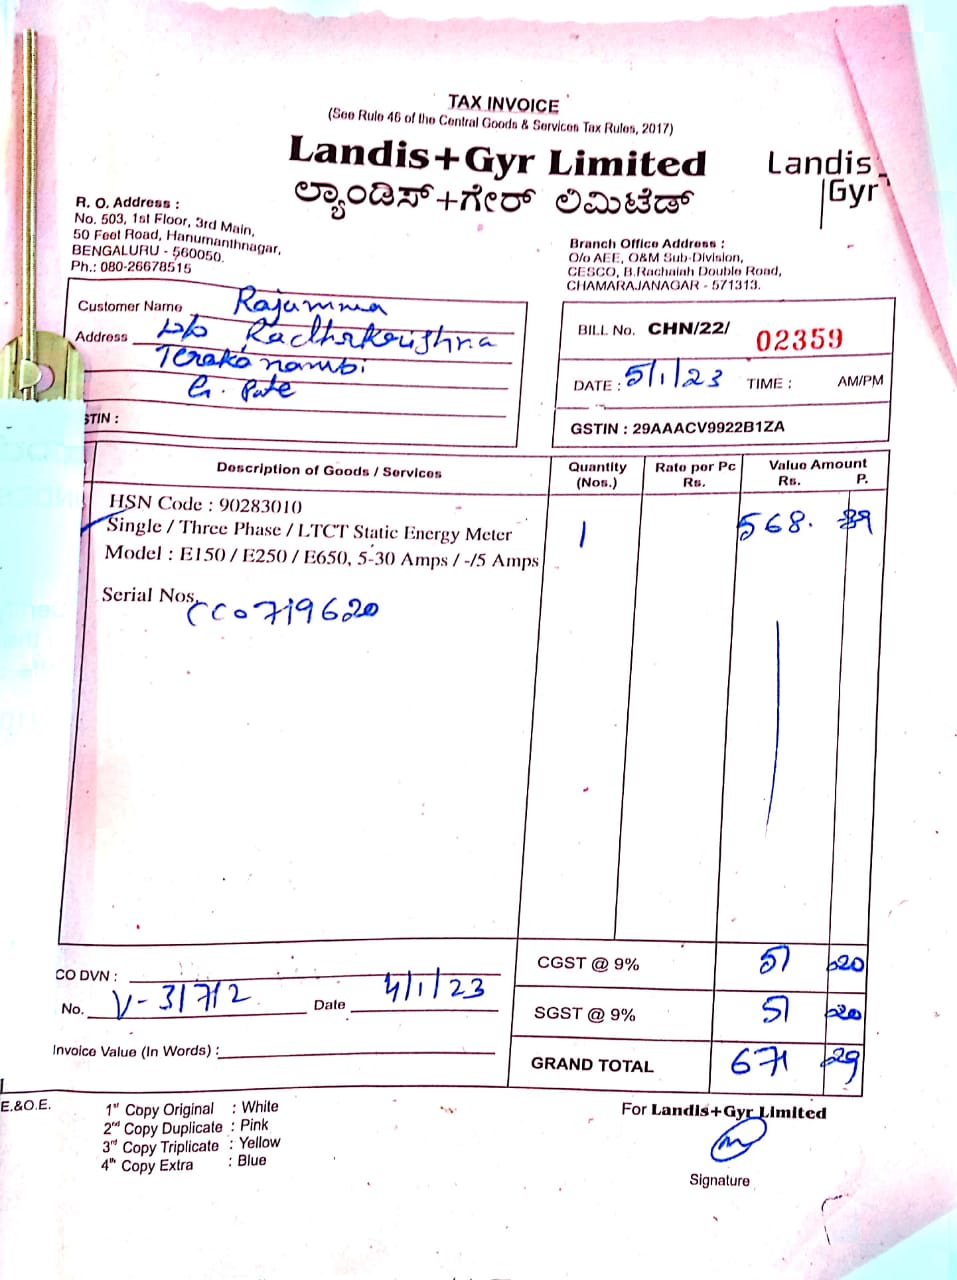 TAX INVOICE
(See Rule 46 of the Central Goods & Services Tax Rules, 2017)
Landis+Gyr Limited
ಲ್ಯಾಂಡಿಸ್+ಗೇರ್ ಲಿಮಿಟೆಡ್
Landis
Gyr
R. O. Address :
No. 503, 1st Floor, 3rd Main,
50 Feet Road, Hanumanthnagar,
BENGALURU - 560050.
Ph.: 080-26678515
Branch Office Address :
O/o AEE, O&M Sub-Division,
CESCO, B.Rachaiah Double Road,
CHAMARAJANAGAR - 571313.
Customer Name Rajamma
Address Radhakrishna
Terakanambi
G. Pete
STIN :
BILL No. CHN/22/ 02359
DATE : 5/1/23 TIME : AM/PM
GSTIN : 29AAACV9922B1ZA
Description of Goods / Services Quantity (Nos.) Rate per Pc Rs. Value Amount Rs. P.
HSN Code : 90283010
Single / Three Phase / LTCT Static Energy Meter 1 568. 89
Model : E150 / E250 / E650, 5-30 Amps / -/5 Amps
Serial Nos. CC0719620
CGST @ 9% 51 20
CO DVN :
No. V-31712 Date 4/1/23
SGST @ 9% 51 20
Invoice Value (In Words) :
GRAND TOTAL 671 29
E.&O.E.
1st Copy Original : White
2nd Copy Duplicate : Pink
3rd Copy Triplicate : Yellow
4th Copy Extra : Blue
For Landis+Gyr Limited
Signature